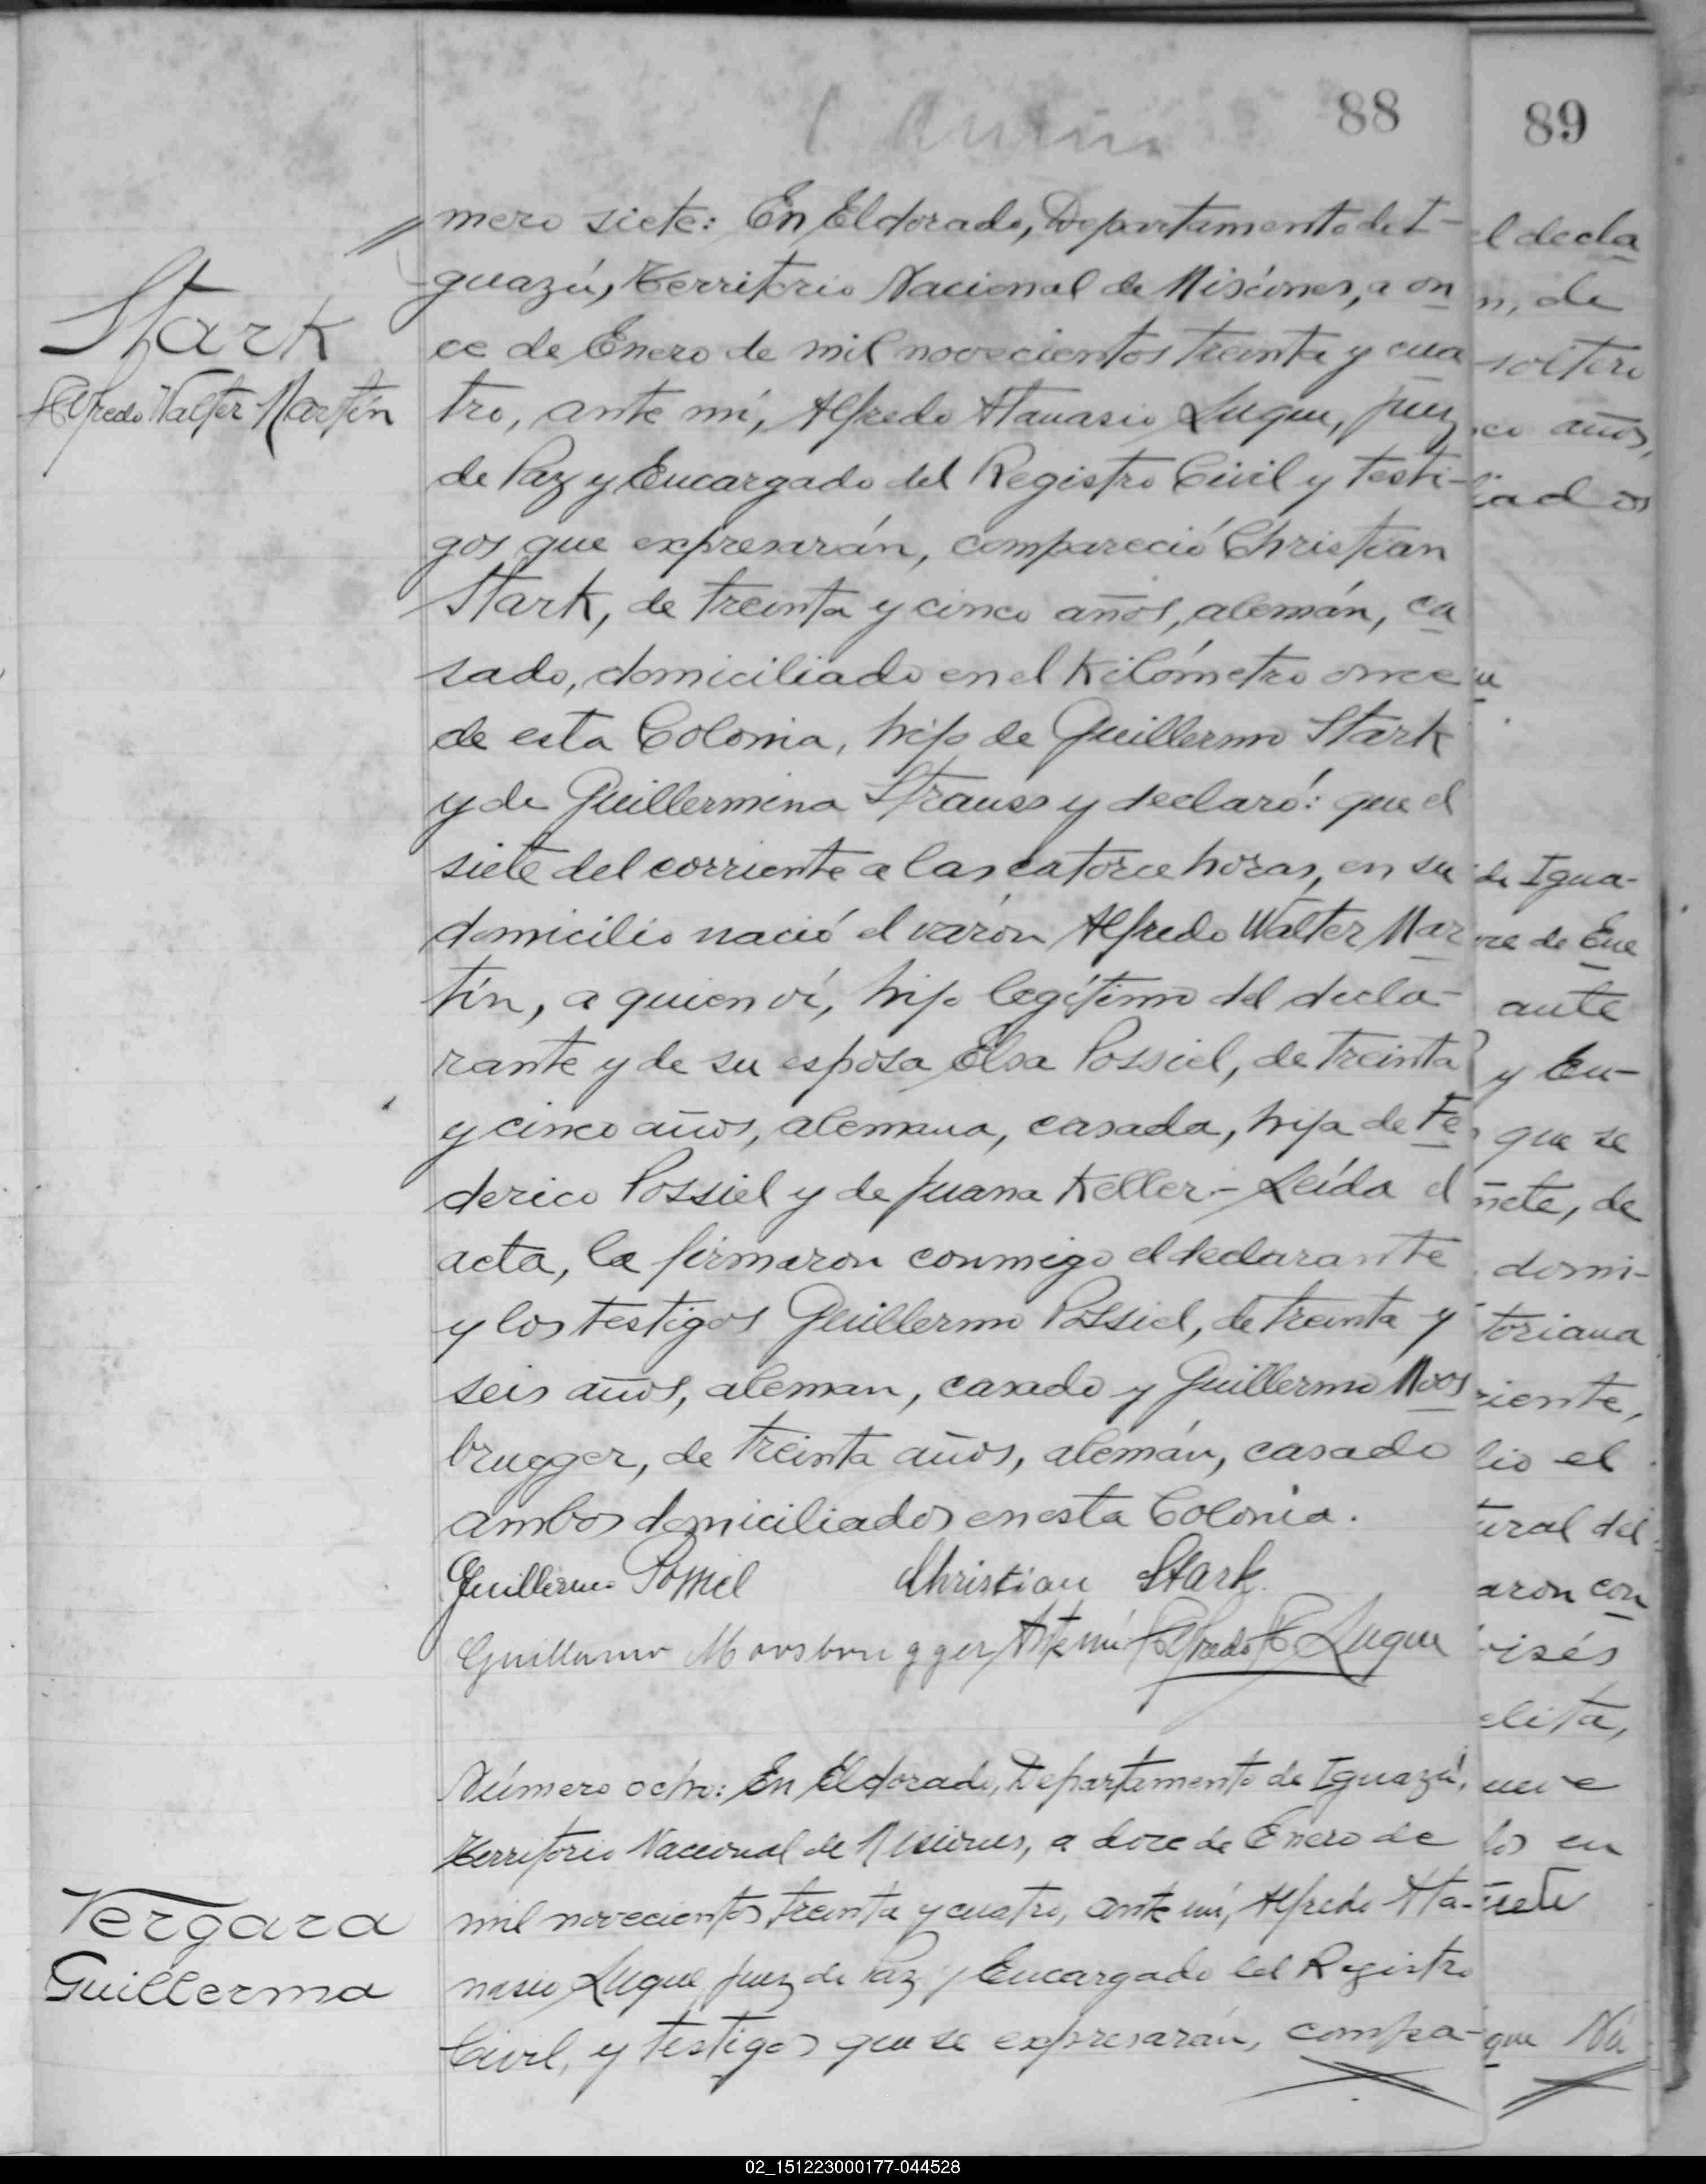 88
89
Stark
Alfredo Walter Martín
mero siete: En Eldorado, Departamento de I-
guazú, Territorio Nacional de Misiones, a on
ce de Enero de mil novecientos treinta y cua
tro, ante mí, Alfredo Atanasio Luque, Juez
de Paz y Encargado del Registro Civil y testi-
gos que expresarán, compareció Christian
Stark, de treinta y cinco años, alemán, ca
sado, domiciliado en el Kilómetro once
de esta Colonia, hijo de Guillermo Stark
y de Guillermina Strauss y declaró: que el
siete del corriente a las catorce horas, en su
domicilio nació el varón Alfredo Walter Mar
tín, a quien ví, hijo legítimo del decla-
rante y de su esposa Elsa Possiel, de treinta
y cinco años, alemana, casada, hija de Fe
derico Possiel y de Juana Keller.- Leída el
acta, la firmaron conmigo el declarante
y los testigos Guillermo Possiel, de treinta y
seis años, aleman, casado y Guillermo Moos
brugger, de treinta años, alemán, casado
ambos domiciliados en esta Colonia.
Guillermo Possiel Christian Stark
Guillermo Moosbrugger Ante mí Alfredo A Luque
Vergara
Guillerma
Número ocho: En Eldorado, Departamento de Iguazú,
Territorio Nacional de Misiones, a doce de Enero de
mil novecientos treinta y cuatro, ante mí, Alfredo Ata-
nasio Luque, Juez de Paz y Encargado del Registro
Civil, y testigos que se expresarán, compa-
el decla
n, de
soltero
co años,
liados
de Igua-
re de Ene
ante
y En-
que se
ñete, de
domi-
toriana
riente,
lio el
tural del
aron con
oisés
elita,
ueve
los en
que Nú
02_151223000177-044528